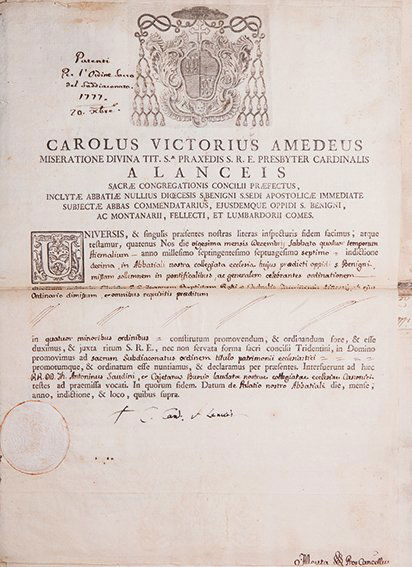 Patenti
Per l'Ordine Sacro
del Suddiaconato
1777.
20. Xbre
CAROLUS VICTORIUS AMEDEUS
MISERATIONE DIVINA TIT. S.æ PRAXEDIS S. R. E. PRESBYTER CARDINALIS
A LANCEIS
SACRÆ CONGREGATIONIS CONCILII PRÆFECTUS,
INCLYTÆ ABBATIÆ NULLIUS DIŒCESIS S. BENIGNI S. SEDI APOSTOLICÆ IMMEDIATE
SUBJECTÆ ABBAS COMMENDATARIUS, EJUSDEMQUE OPPIDI S. BENIGNI,
AC MONTANARII, FELLECTI, ET LUMBARDORII COMES.
UNIVERSIS, & singulis præsentes nostras literas inspecturis fidem facimus, atque
testamur, quatenus Nos die vigesima mensis Decembris Sabbato quatuor temporum
anno millesimo septingentesimo septuagesimo septimo indictione
decima, in Abbatiali nostra collegiata ecclesia hujus prædicti oppidi S. Benigni,
missam solemnem in pontificalibus, ac generalem celebrantes ordinationem
ejus
Ordinario dimissum, et omnibus requisitis præditum
in quatuor minoribus ordinibus constitutum promovendum, & ordinandum fore, & esse
duximus, & juxta ritum S. R. E., nec non servata forma sacri concilii Tridentini, in Domino
promovimus ad sacrum Subdiaconatus ordinem titulo patrimonii ecclesiastici
promotumque, & ordinatum esse nuntiamus, & declaramus per præsentes. Interfuerunt ad hæc
RR. DD. Antoninus Sandini, et Cajetanus Bunio laudatæ nostræ collegiatæ ecclesiæ Canonici
testes ad præmissa vocati. In quorum fidem. Datum de Palatio nostro Abbatiali die, mense,
anno, indictione, & loco, quibus supra.
C. Card.
Pro Cancell